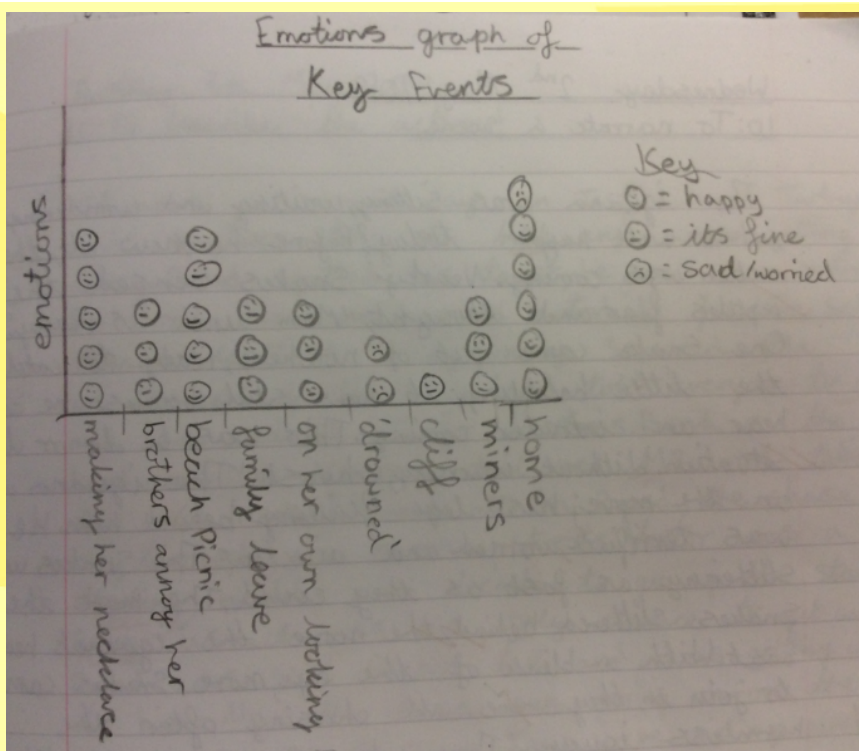 Emotions graph of
Key Events
emotions
Key
= happy
= its fine
= sad/worried
making her necklace
brothers annoy her
beach Picnic
family leave
on her own looking
'drowned'
cliff
miners
home